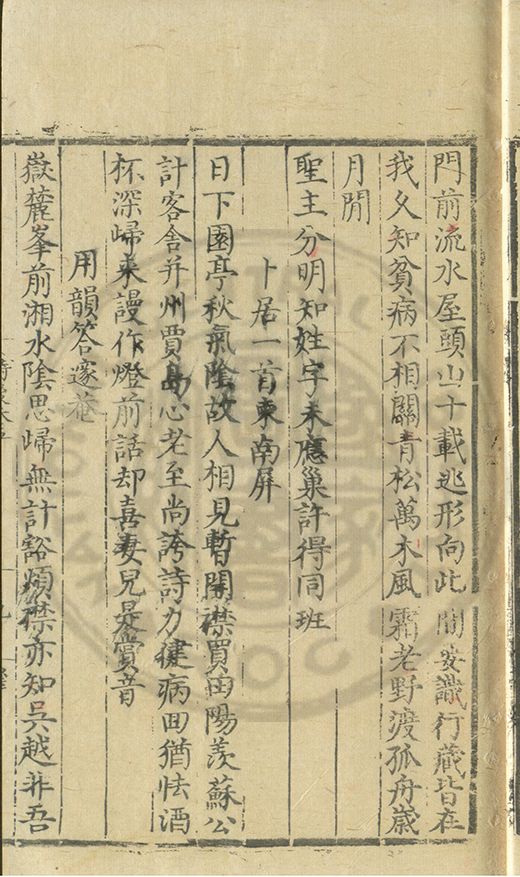 門前流水屋頭山十載逃形向此間安識行藏皆在
我久知貧病不相關青松萬木風霜老野渡孤舟歲
月閒
聖主分明知姓字未應巢許得同班
卜居一首東南屏
日下園亭秋氣陰故人相見暫開襟買田陽羨蘇公
計客舍并州賈島心老至尚誇詩力健病回猶怯酒
杯深歸來謾作燈前話却喜妻兒是賞音
用韻答邃菴
嶽麓峯前湘水陰思歸無計豁煩襟亦知吳越非吾